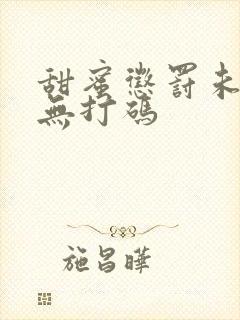 甜蜜懲罰未
無打碼
施昌曄